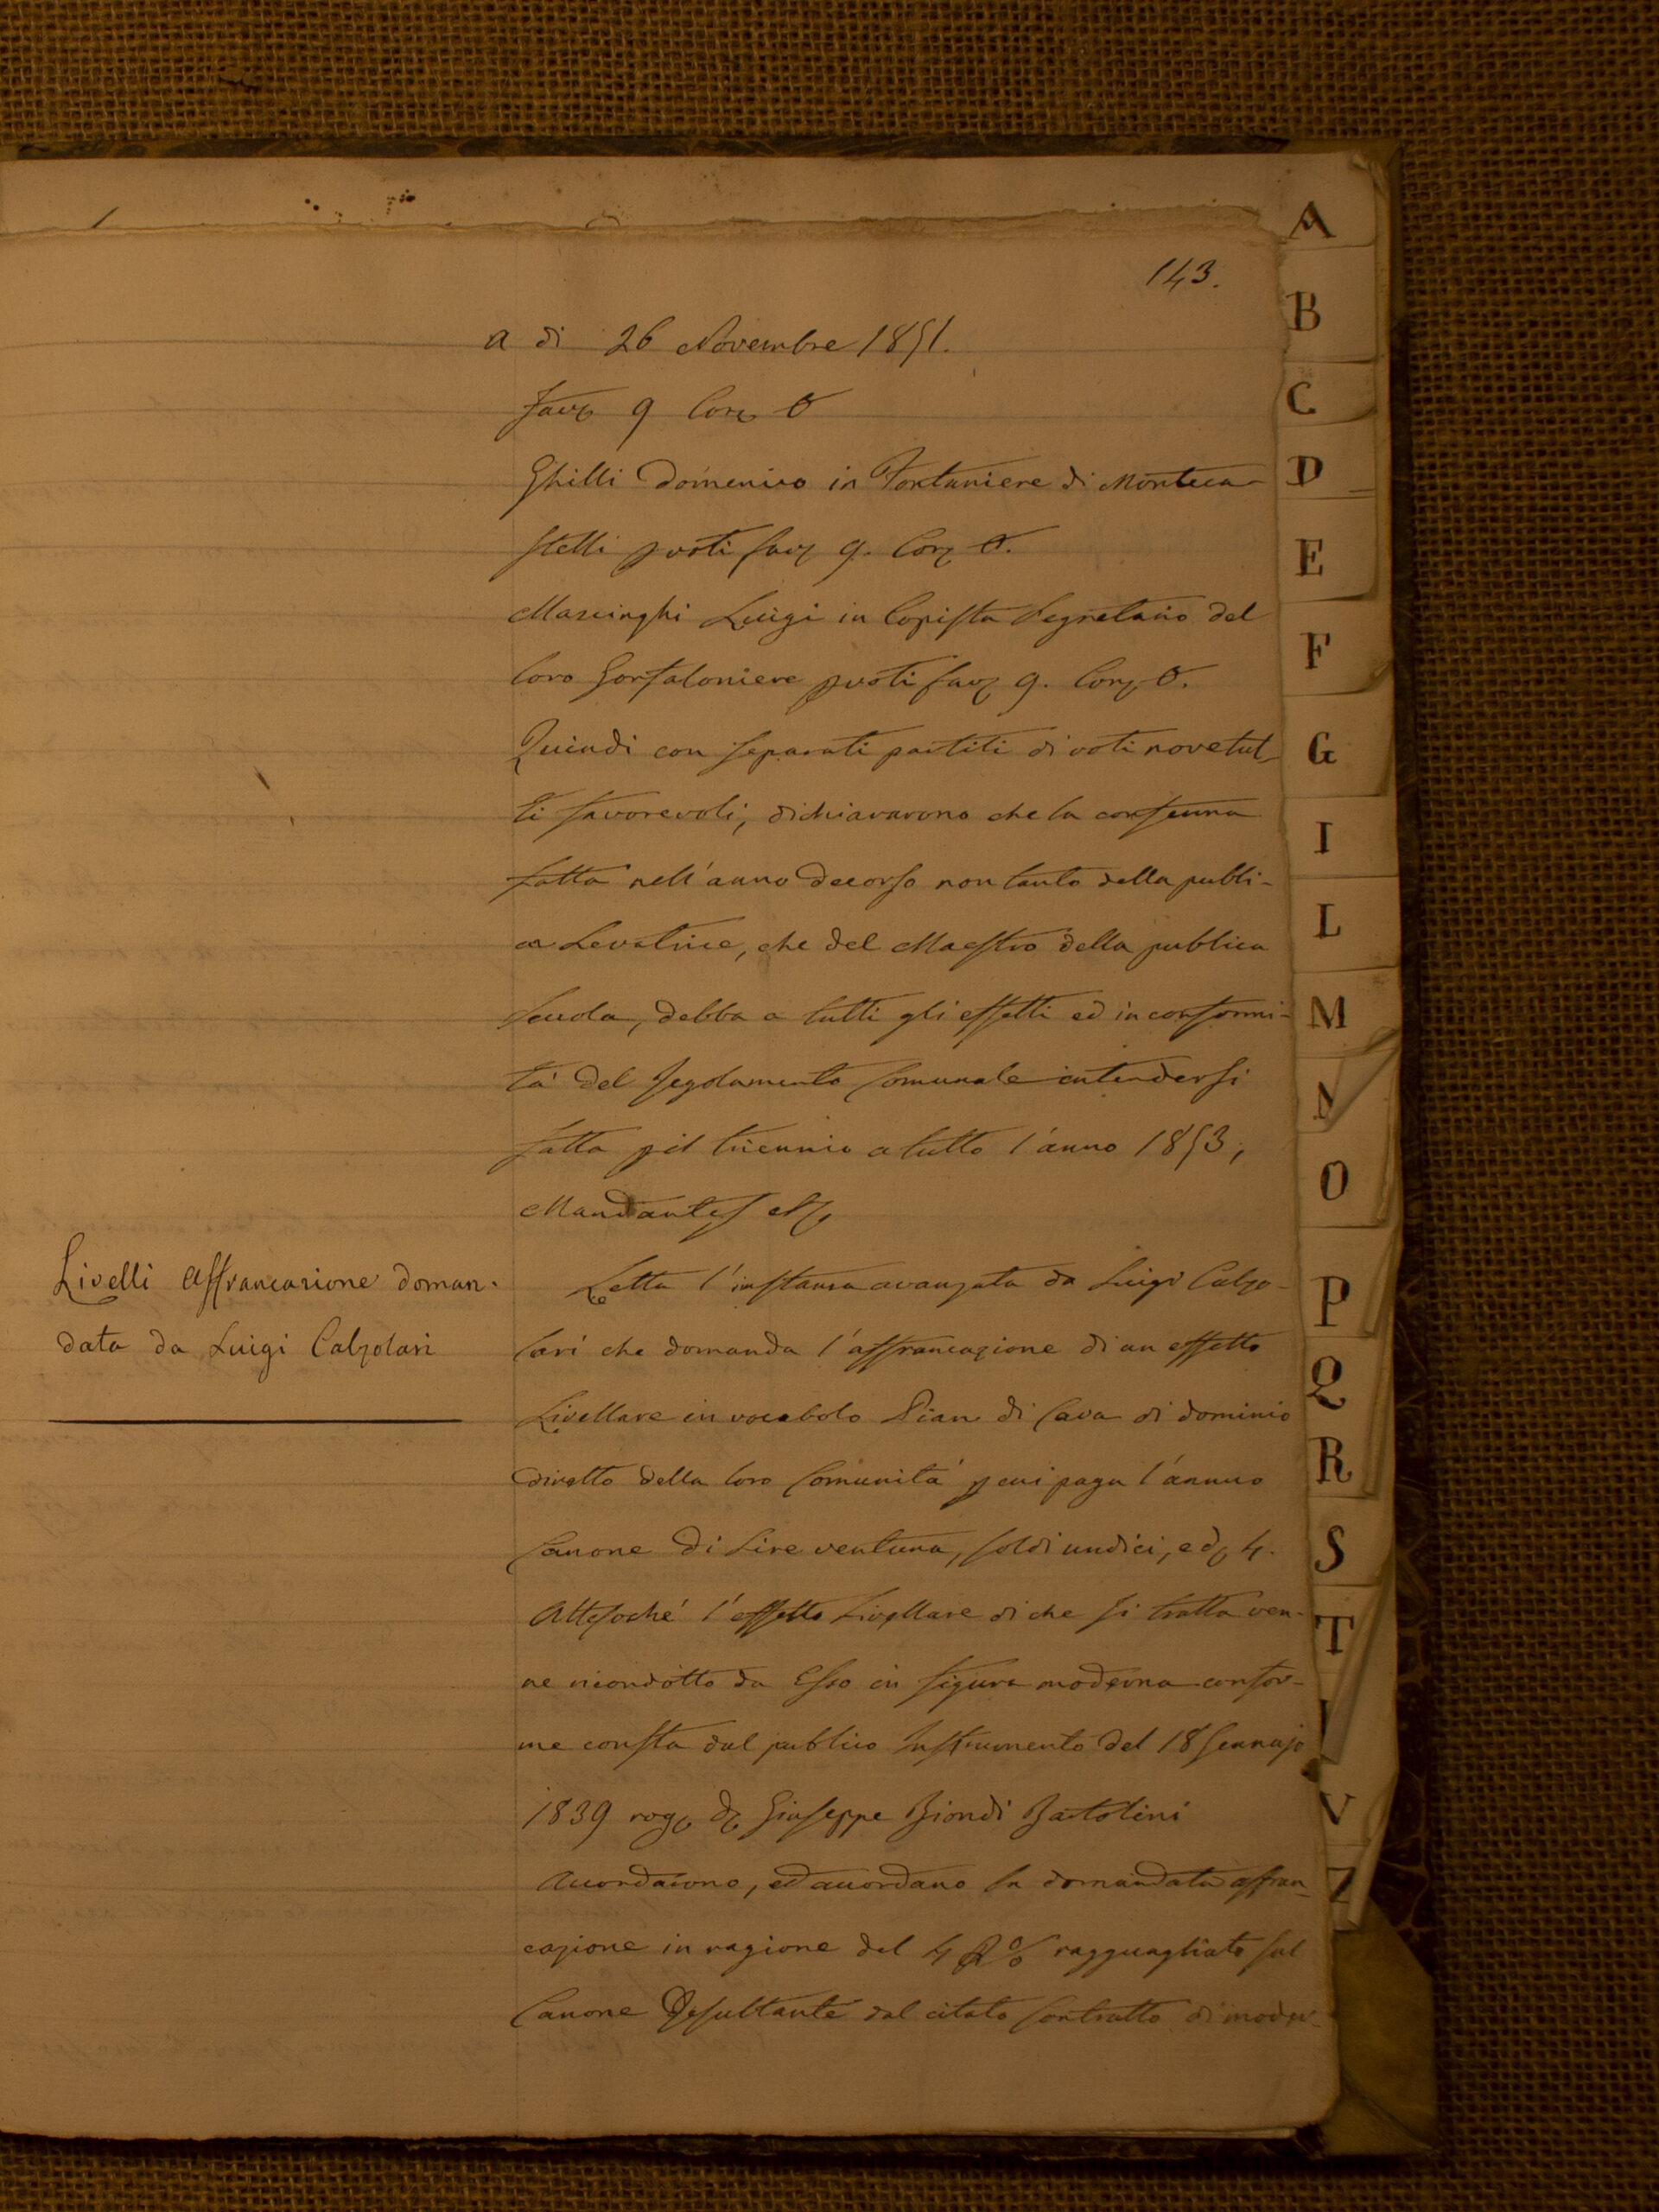 143.
a di 26 Novembre 1851.
favi 9 Cori 0
Ghilli Domenico in Fontaniere di Monteca-
stelli p voti favi 9. Cori 0.
Marcinghi Luigi in Copista Segretario del
loro Gonfaloniere p voti favi 9. Cori 0.
Quindi con separati partiti di voti nove tut-
ti favorevoli, dichiararono che la conferma
fatta nell'anno decorso non tanto della publi-
ca Levatrice, che del Maestro della publica
Scuola, debba a tutti gli effetti ed in conformi-
tà del Regolamento Comunale intendersi
fatta p il triennio a tutto l'anno 1853,
Mandantes
Livelli Affrancazione doman-
data da Luigi Calzolari
Letta l'instanza avanzata da Luigi Calzo-
lari che domanda l'affrancazione di un effetto
Livellare in vocabolo Pian di Cava di dominio
diretto della loro Comunità p cui paga l'annuo
Canone di Lire ventuna, soldi undici, e d. 4.
Attesoché l'effetto Livellare di che si tratta ven-
ne ricondotto da Esso in figura moderna confor-
me consta dal publico Instrumento del 18 Gennajo
1839 Giuseppe Biondi Bartolini
Accordarono, ed accordano la domandata affran-
cazione in ragione del 4 % ragguagliato sul
Canone Resultante dal citato Contratto di moder-
A
B
C
D
E
F
G
I
L
M
N
O
P
Q
R
S
T
V
Z